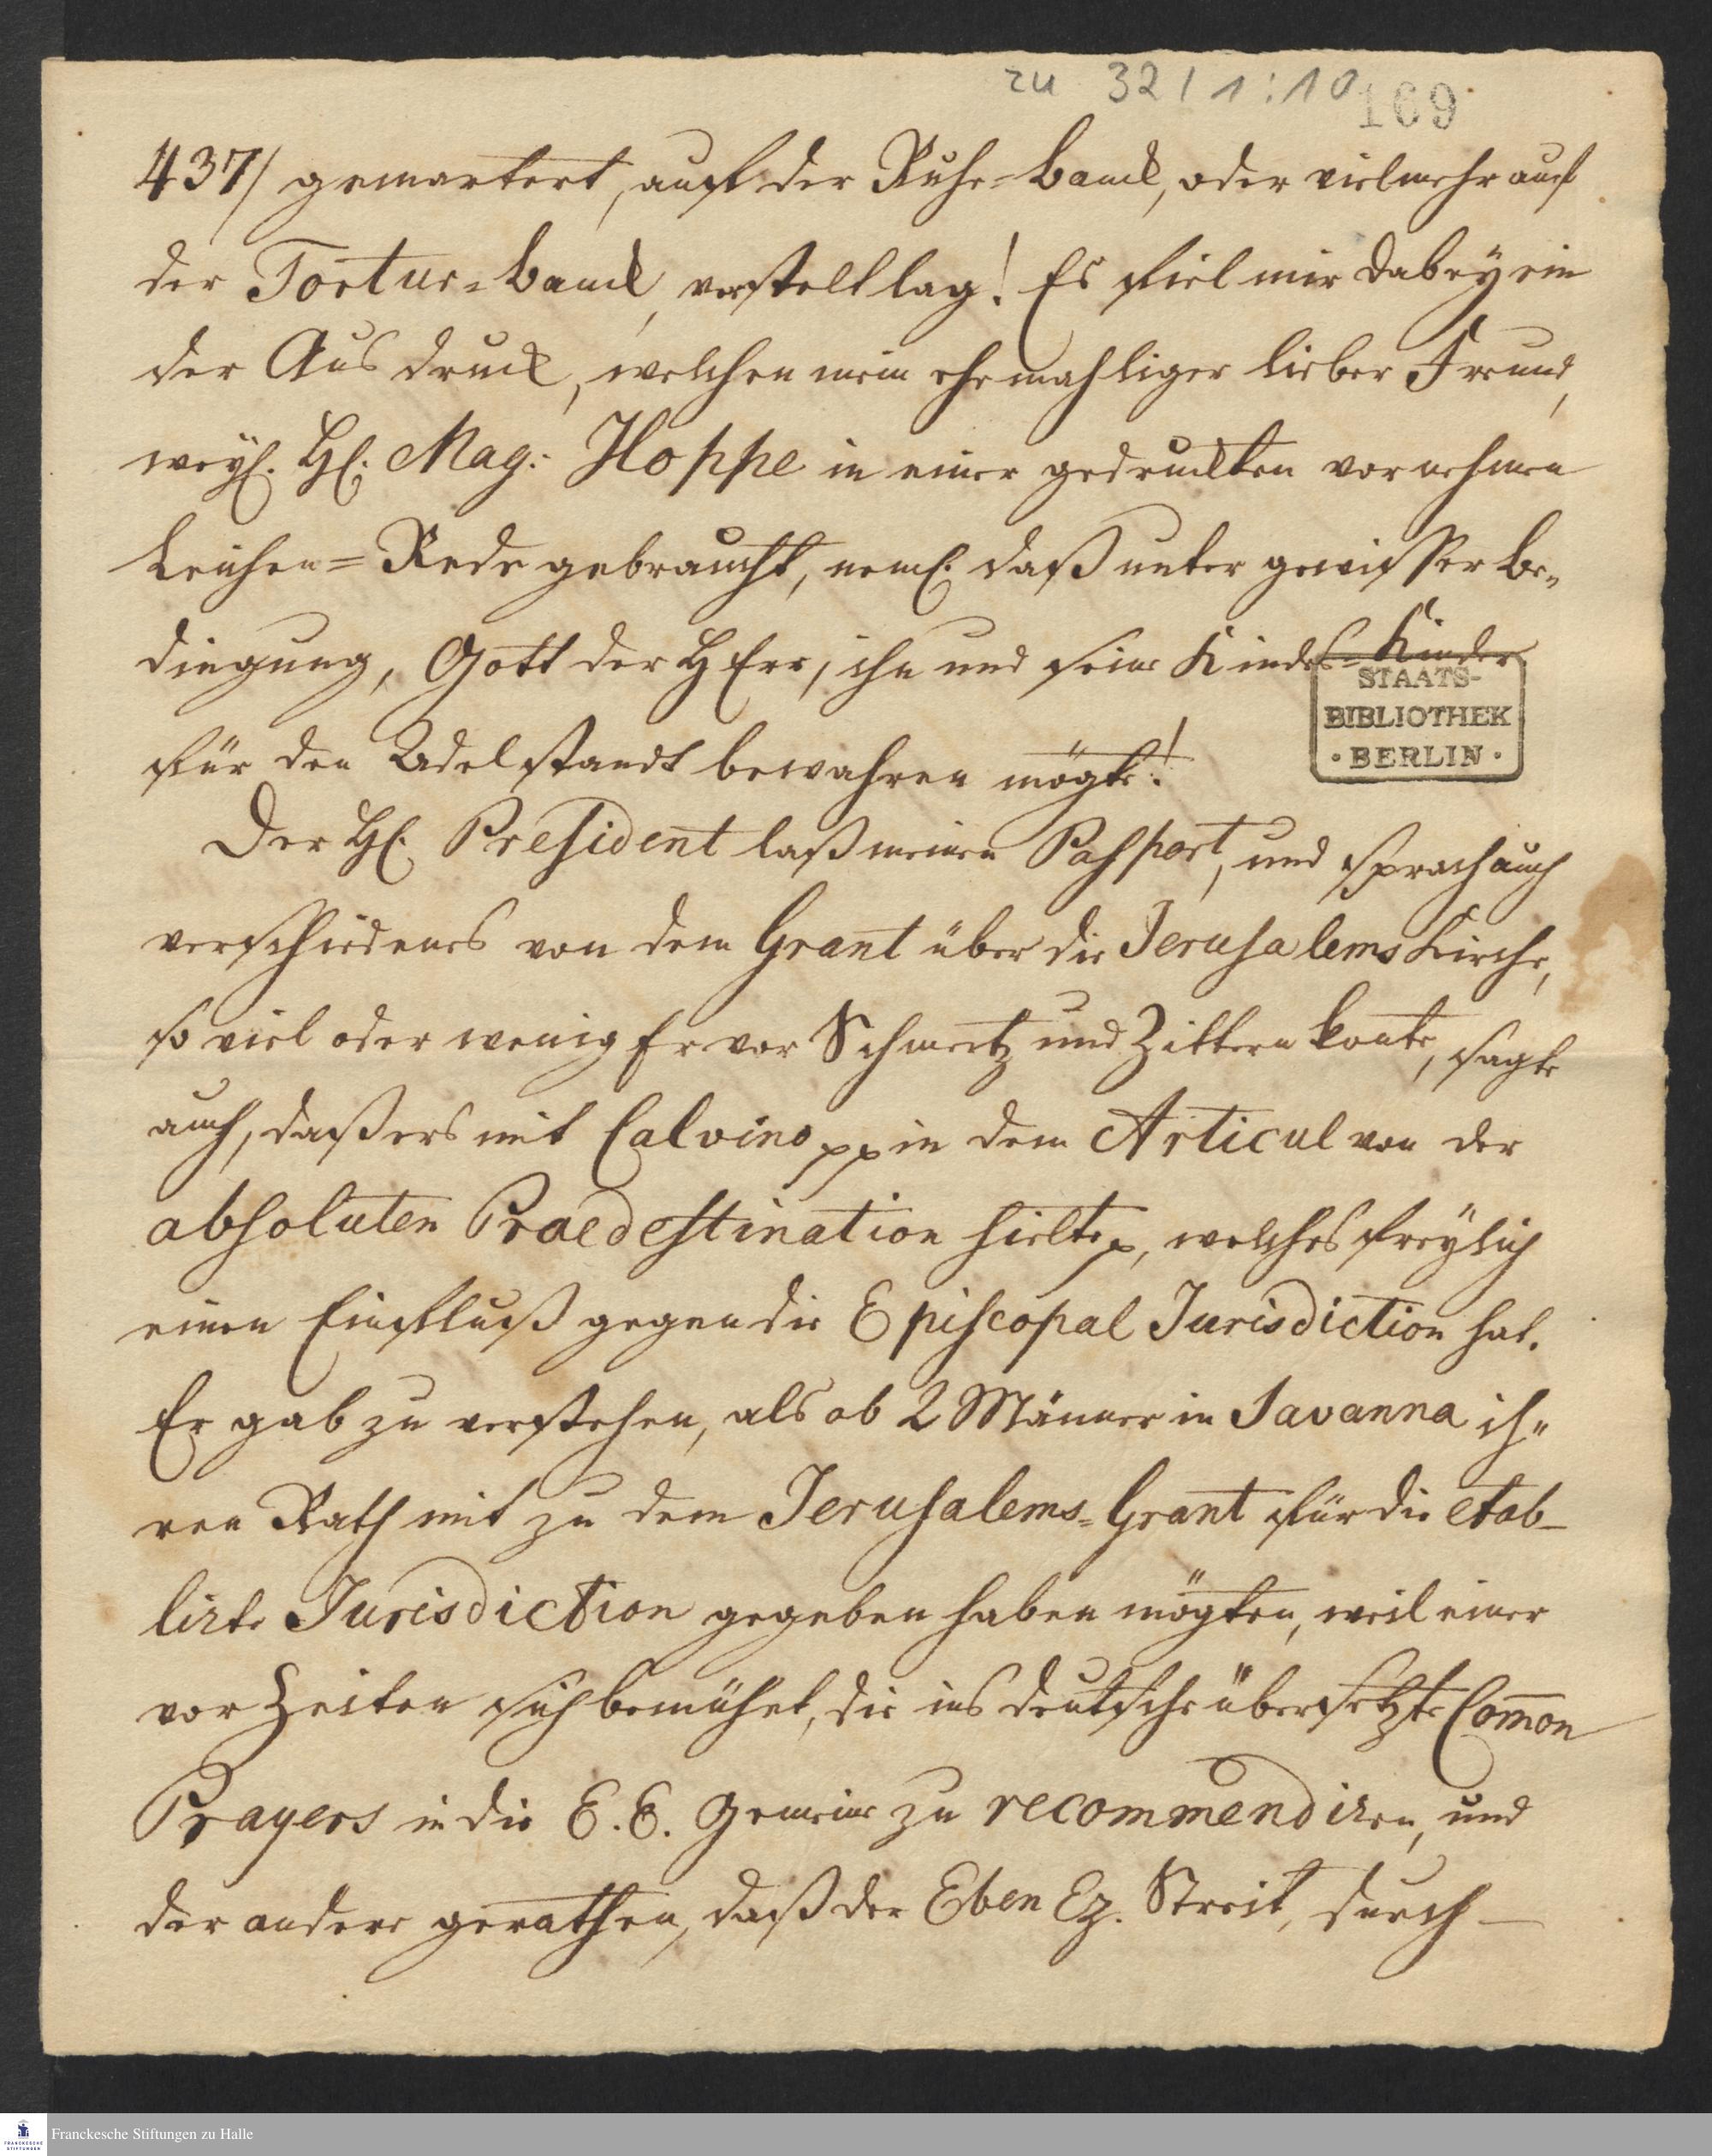 zu 32 / 1 : 10
169
437/ gemartert, auf der Ruhe-banck, oder vielmehr auf
der Tortur-banck, verstelt lag! Es fiel mir dabey ein
der Ausdruck, welchen mein ehemahliger lieber Freund,
weyl. H: Mag: Hoppe in einer gedruckten vornehmen
Leichen=Rede gebraucht, neml. daß unter gewisser be-
dingung, Gott der HErr, ihn und seine Kindes=Kinder
für den Adelstandt bewahren mögte!
Der H. President laß meinen Passport, und sprach auch
verschiedenes von dem Grant über die Jerusalems Kirche,
so viel oder wenig Er vor Schmertz und Zittern konte, sagte
auch, daß ers mit Calvino pp in dem Articul von der
absoluten Praedestination hielte p, welches freylich
einen Einfluß gegen die Episcopal Jurisdiction hat.
Er gab zu verstehen, als ob 2 Männer in Savanna ih-
ren Rath mit zu dem Jerusalems-Grant für die etab-
lirte Jurisdiction gegeben haben mögten, weil einer
vor Zeiten sich bemühet, die ins deutsche übersetzte Com̄on
Prayers in die E. E. Gemeine zu recommendiren, und
der andere gerathen, daß der Eben Ez. Streit, durch -
STAATS-
BIBLIOTHEK
· BERLIN ·
FRANCKESCHE
STIFTUNGEN
Franckesche Stiftungen zu Halle